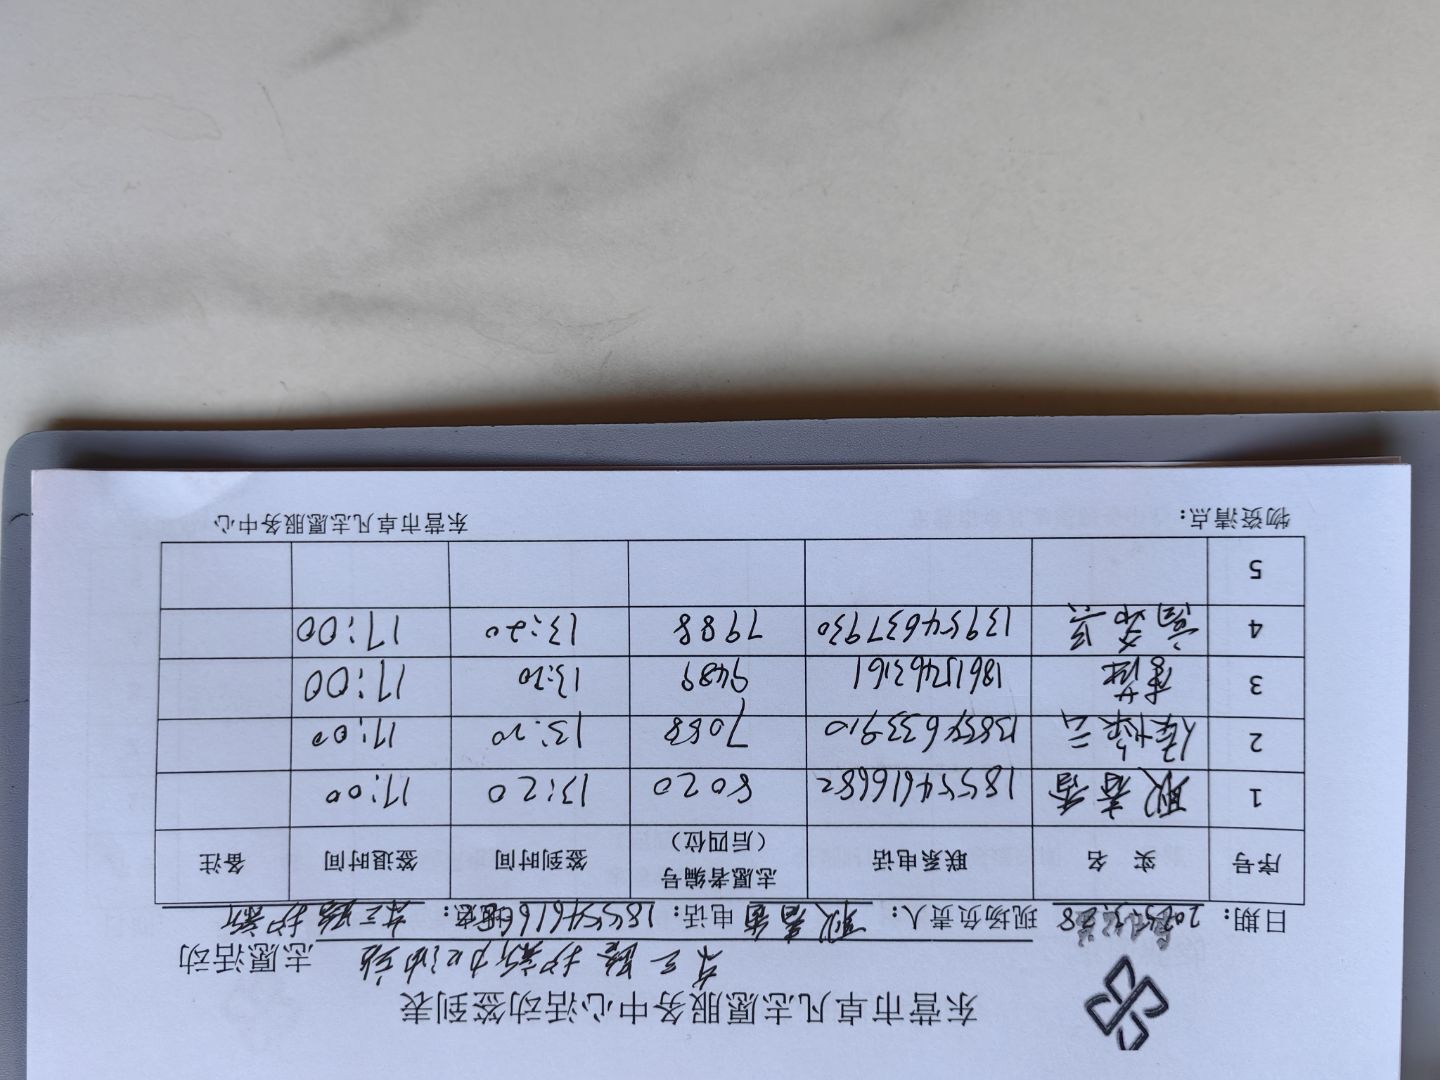 东营市卓凡志愿服务中心活动签到表
东三路护新加油站 志愿活动
日期：2025.3.28 现场负责人： 电话：18554616682 东三路护新
序号 实名 联系电话 志愿者编号（后四位） 签到时间 签退时间 备注
1 18554616682 8020 13:20 17:00
2 13854633910 7088 13:20 17:00
3 18615463161 9489 13:20 17:00
4 13954637930 7988 13:20 17:00
5
物资清点： 东营市卓凡志愿服务中心